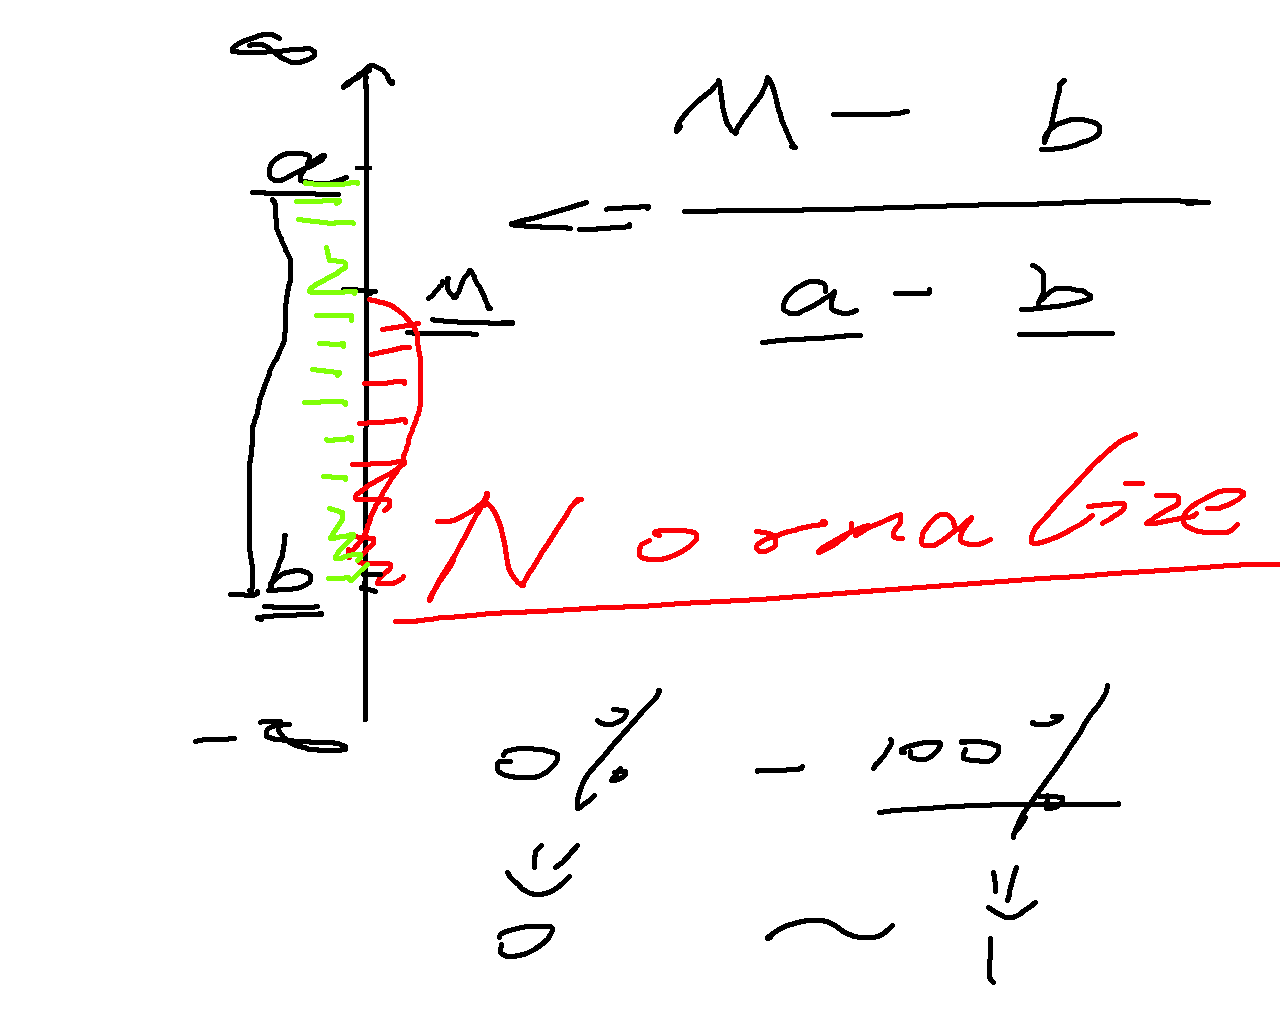 ∞
M - b
a
<=
M
a - b
Normalize
b
-∞
0% - 100%
0 ~ 1